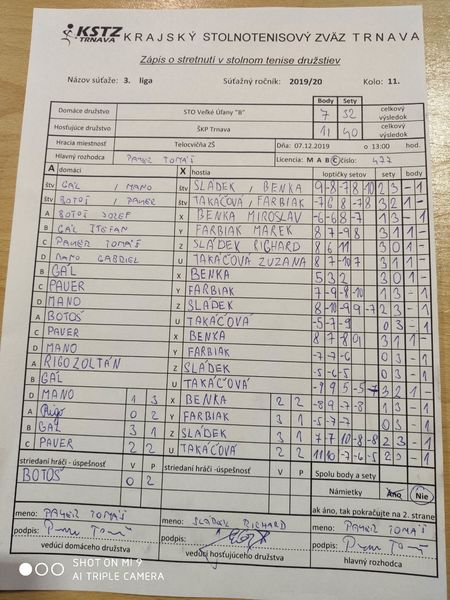 KSTZ TRNAVA KRAJSKÝ STOLNOTENISOVÝ ZVÄZ TRNAVA
Zápis o stretnutí v stolnom tenise družstiev
Názov súťaže: 3. liga Súťažný ročník: 2019/20 Kolo: 11.
Body Sety
Domáce družstvo STO Veľké Úľany "B" 7 32 celkový výsledok
Hosťujúce družstvo ŠKP Trnava 11 40 celkový výsledok
Hracia miestnosť Telocvičňa ZŠ Dňa: 07.12.2019 o 13:00 hod.
Hlavný rozhodca PAVER TOMÁŠ Licencia: M A B C číslo: 477
A domáci X hostia loptičky setov sety body
štv GÁL, MANO štv SLÁDEK, BENKA 9 -8 -7 8 -10 2 3 - 1
štv BOTOŠ, PAVER štv TAKÁČOVÁ, FARBIAK -7 6 8 -7 8 3 2 1 -
A BOTOŠ JOZEF X BENKA MIROSLAV -6 -6 8 -7 1 3 - 1
B GÁL ŠTEFAN Y FARBIAK MAREK 8 7 -9 8 3 1 1 -
C PAVER TOMÁŠ Z SLÁDEK RICHARD 8 6 11 3 0 1 -
D MANO GABRIEL U TAKÁČOVÁ ZUZANA 8 7 -10 7 3 1 1 -
B GÁL X BENKA 5 3 2 3 0 1 -
C PAVER Y FARBIAK -7 -9 -8 1 3 - 1
D MANO Z SLÁDEK 8 -10 -9 2 3 - 1
A BOTOŠ U TAKÁČOVÁ -5 -7 -9 0 3 - 1
C PAVER X BENKA 8 7 8 9 3 1 1 -
D MANO Y FARBIAK -7 -7 -6 0 3 - 1
A RIGO ZOLTÁN Z SLÁDEK -5 -6 -5 0 3 - 1
B GÁL U TAKÁČOVÁ 3 2 1 -
D MANO 1 3 X BENKA 2 2 -8 9 -7 -8 1 3 - 1
A Rigo 0 2 Y FARBIAK 3 1 -5 -7 -7 0 3 - 1
B GÁL 3 1 Z SLÁDEK 3 1 7 -7 10 -8 -8 2 3 - 1
C PAVER 2 2 U TAKÁČOVÁ 2 2 11 10 -7 -6 -5 2 3 - 1
striedaní hráči - úspešnosť V P striedaní hráči - úspešnosť V P Spolu body a sety
BOTOŠ 0 2 Námietky Áno Nie
ak áno, tak pokračujte na 2. strane
meno: PAVER TOMÁŠ meno: SLÁDEK RICHARD meno: PAVER TOMÁŠ
podpis: podpis: podpis:
vedúci domáceho družstva vedúci hosťujúceho družstva hlavný rozhodca
SHOT ON MI 9
AI TRIPLE CAMERA